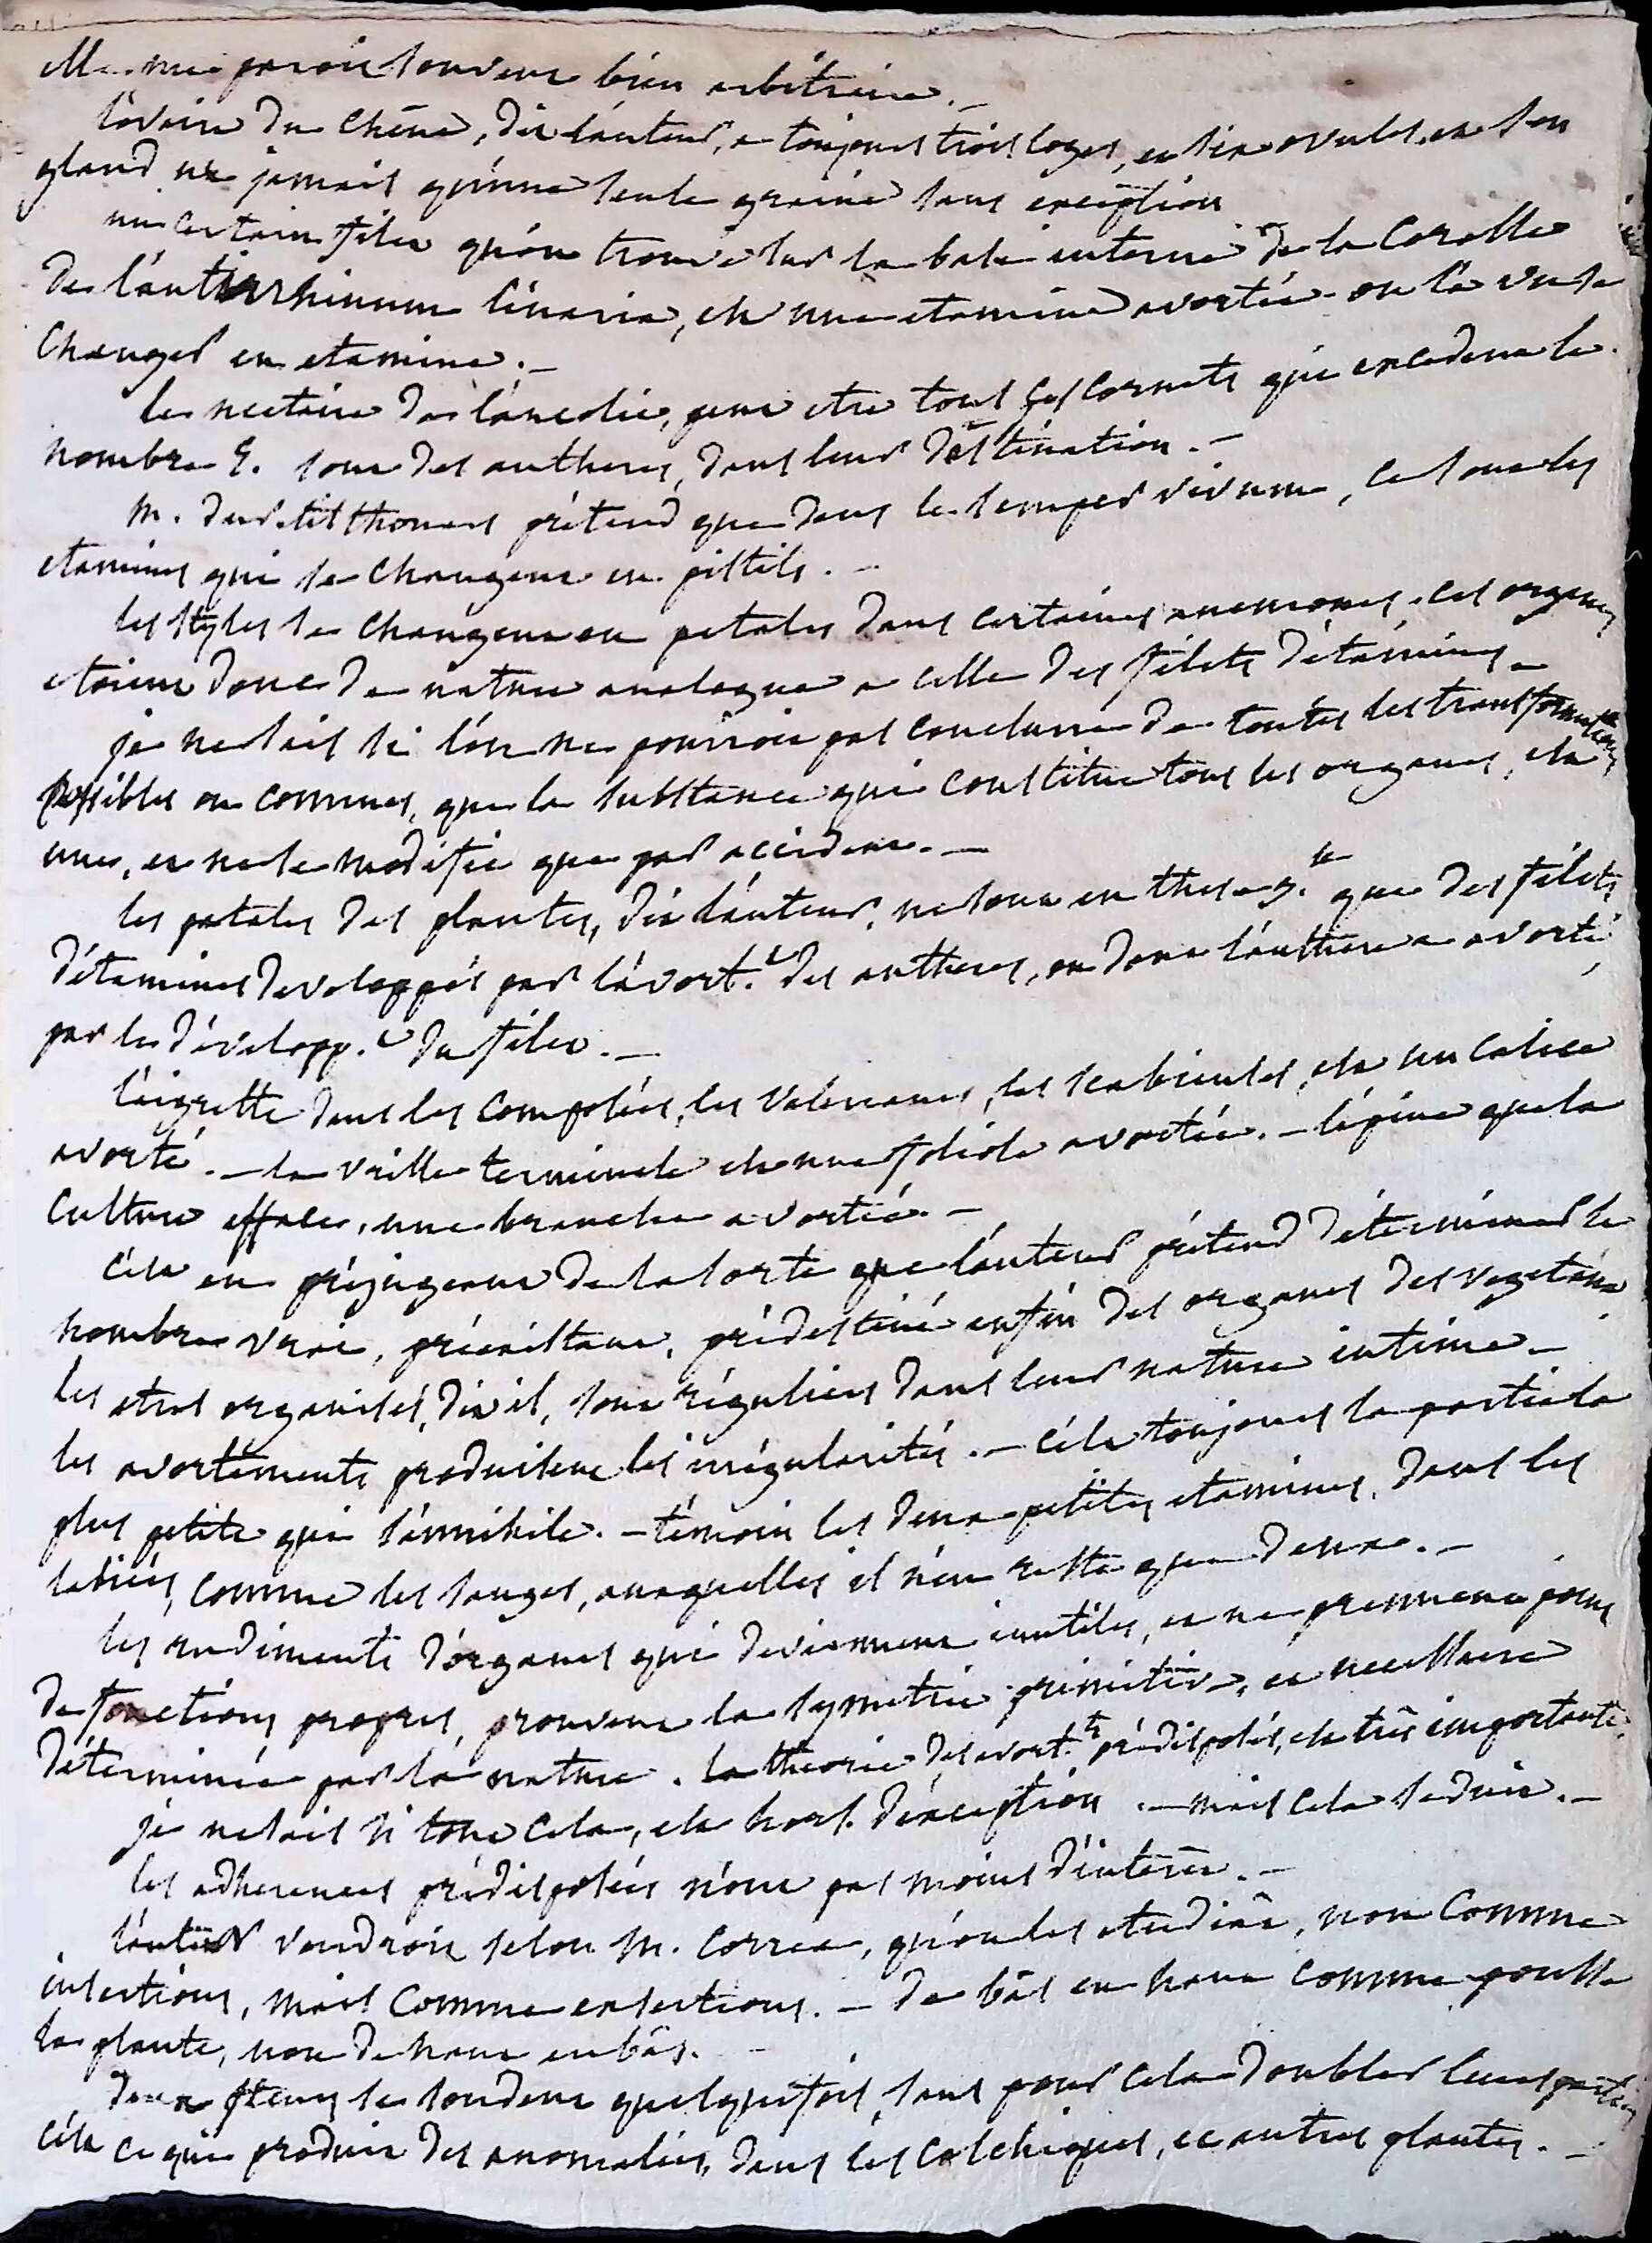 elle me paroit souvent bien arbitraire. –
l'ovaire du chêne, dit l'auteur, a toujours trois loges, et six ovules, et son
gland n'a jamais qu'une seule graine sans exception
un certain filet qu'on trouve sur la base interne de la Corolle
de l'antirrhinum linaria, est une etamine avortée – on l'a vu se
changer en etamine. –
le nectaire de l'ancolie, peut etre tous ces Cornets qui excedent le
nombre 5. sont des antheres, dans leur destination. –
M. du petit thouars prétend que dans le semper vivum, ce sont les
etamines qui se changent en pistils. –
les styles se changent en petales dans certaines anemones. ces organes
etoient donc de nature analogue a celle des filets d'étamines –
je ne sais si l'on ne pourroit pas conclurre de toutes les transformations
possibles ou connues, que la substance qui constitue tous les organes, est
une, et ne se modifie que par accident. –
les petales des plantes, dit l'auteur, ne sont en these g.le que des filets
d'étamines developpés par l'avort.t des antheres, ou dont l'anthere a avorté
par le développ.t du filet. –
l'aigrette dans les composées, les valerianes, les scabieuses, est un calice
avorté. – la vrille terminale est une foliole avortée. – l'épine que la
culture efface, une branche avortée. –
c'est en préjugeant de la sorte que l'auteur prétend déterminer le
nombre vrai, préexistant, prédestiné enfin des organes des vegetaux
les etres organisés, dit il, sont réguliers dans leur nature intime –
les avortements produisent les irrégularités. – c'est toujours la partie la
plus petite qui s'annihile. – témoin les deux petites etamines, dans les
labiées, comme les sauges, auxquelles il n'en reste que deux. –
les rudiments d'organes qui deviennent inutiles, et ne prennent point
de fonctions propres, prouvent la symetrie primitive, et necessaire
déterminée par la nature. la théorie des avort.ts prédisposés, est très importante.
je ne sais si tout cela, est hors d'exception. – mais cela seduit. –
les adherences prédisposées n'ont pas moins d'intérêt. –
l'auteur voudroit selon M. Correa, qu'on les etudiât, non comme
insertions, mais comme exsertions. – de bas en haut comme pousse
la plante, non de haut en bas. –
deux fleurs se soudent quelquefois, sans pour cela doubler leurs parties
c'est ce qui produit des anomalies, dans les colchiques, et autres plantes. –